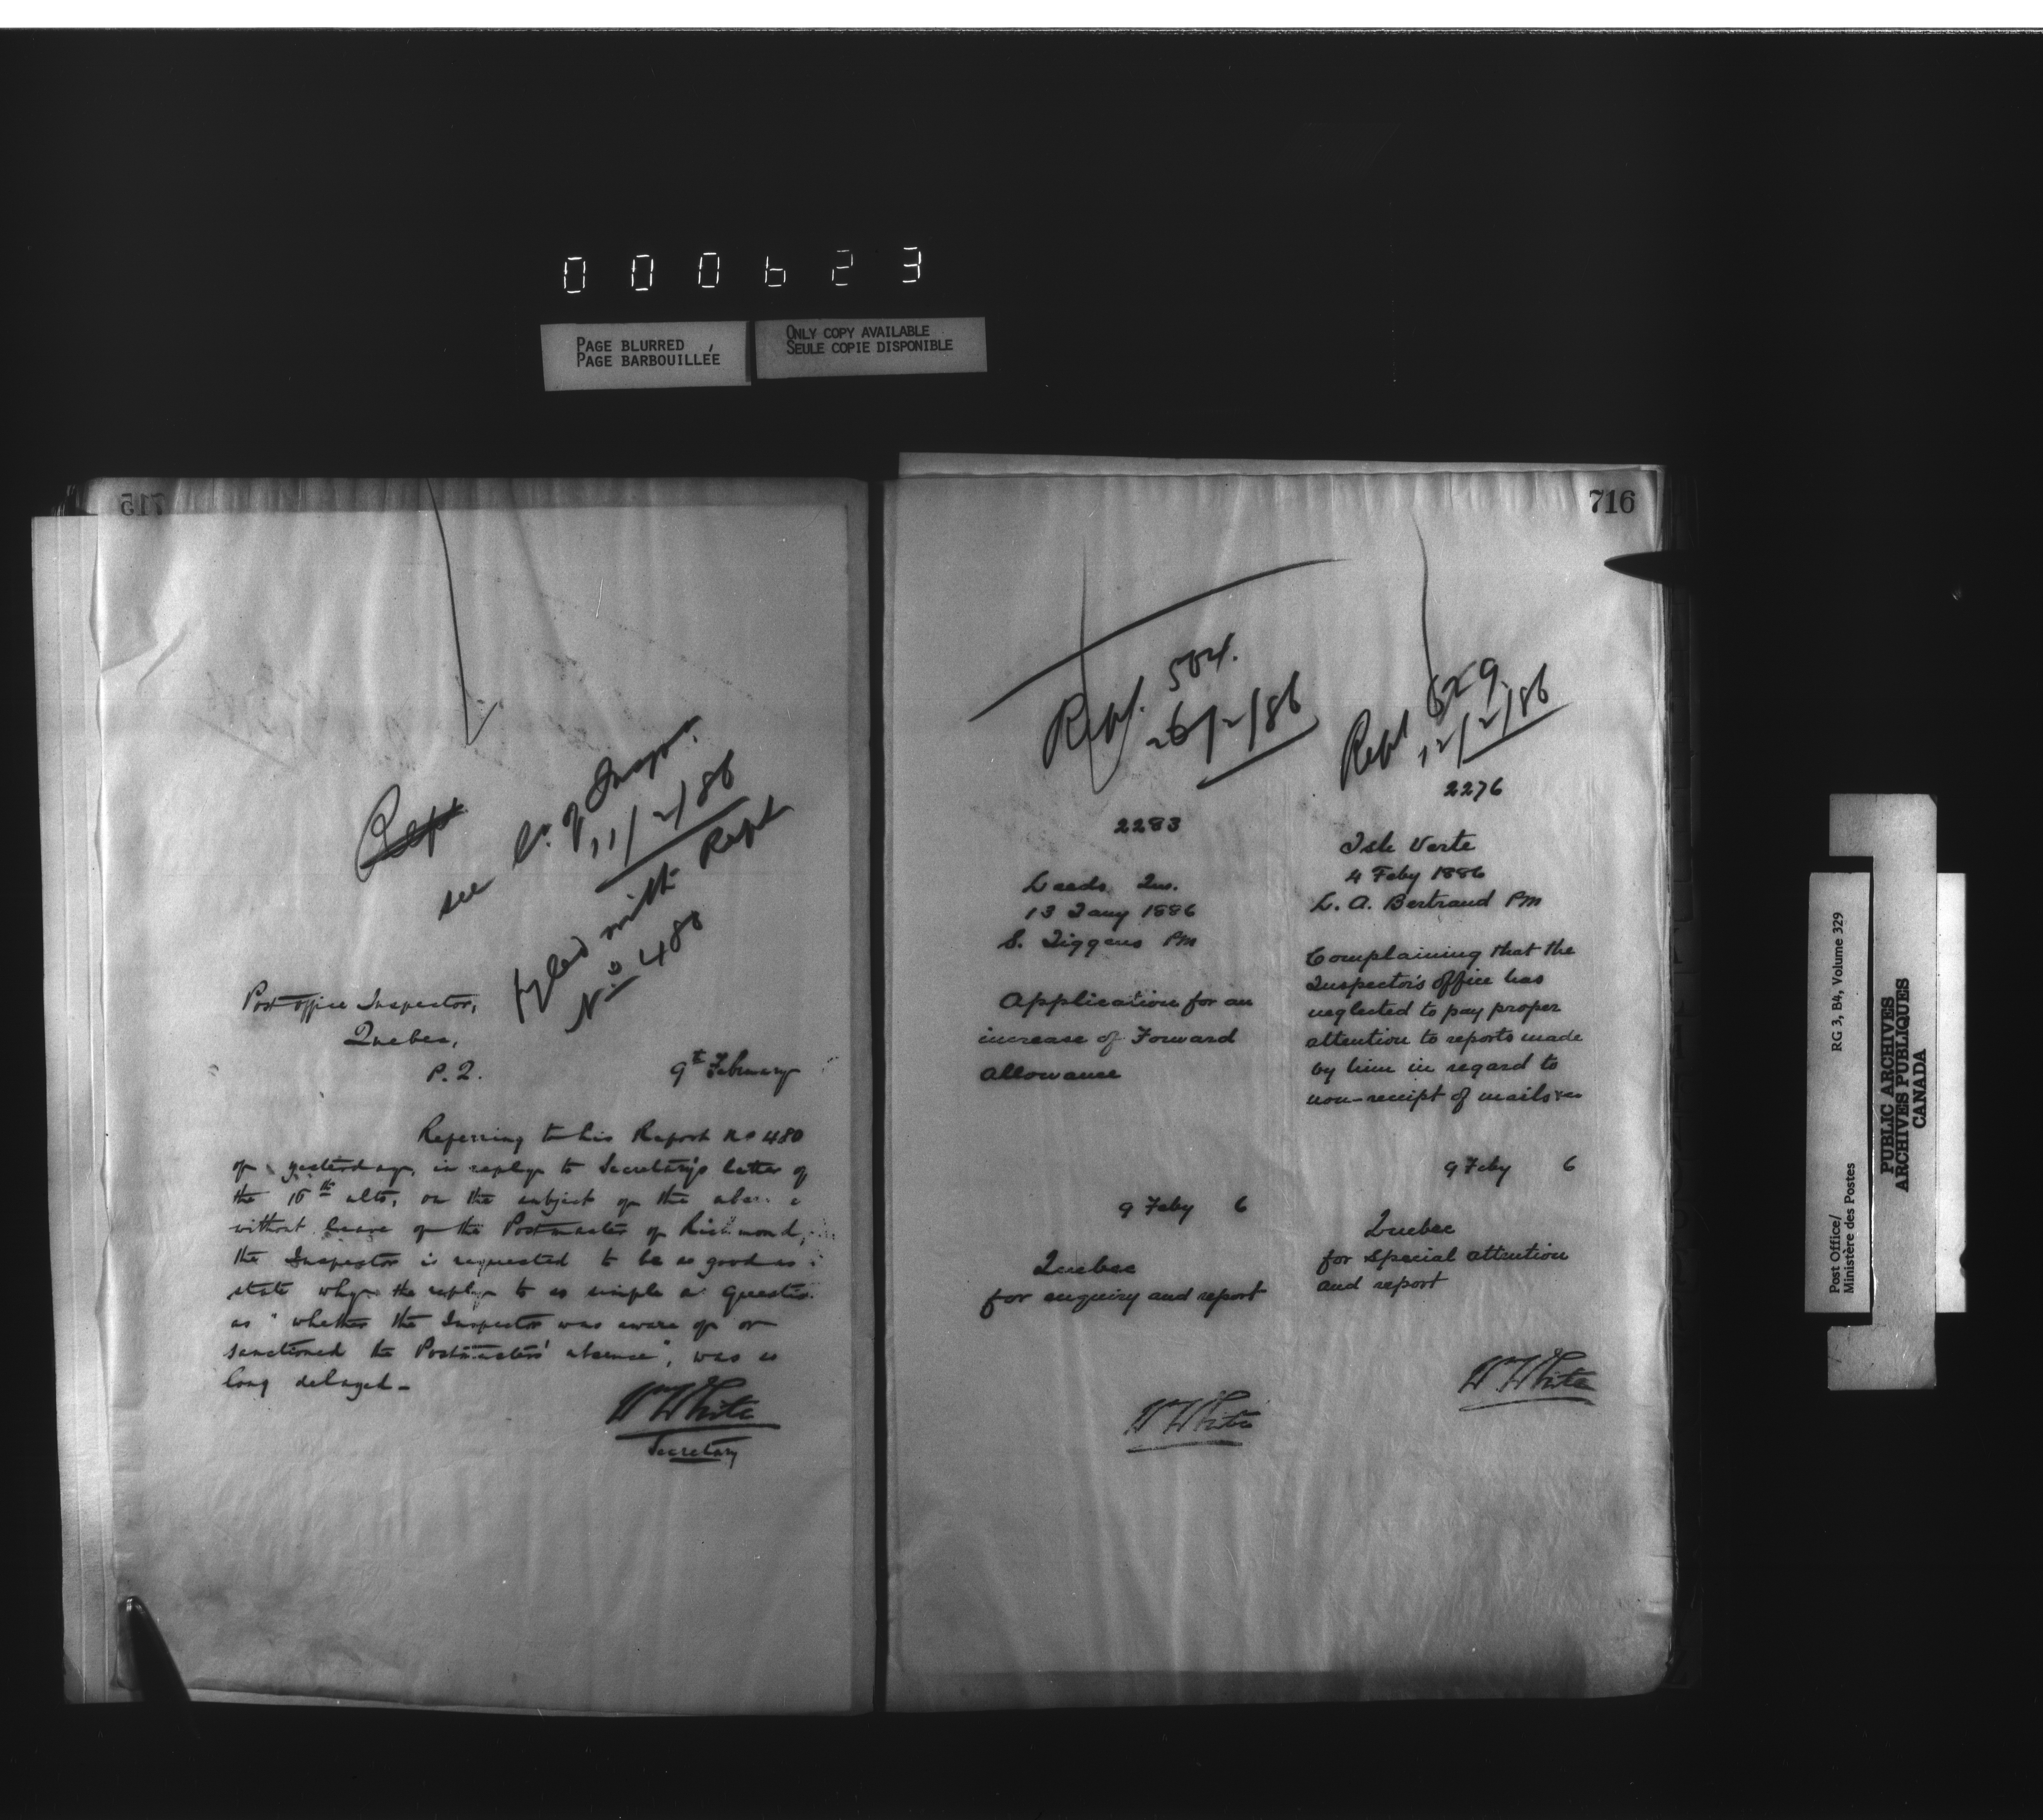 000623
PAGE BLURRED
PAGE BARBOUILLÉE
ONLY COPY AVAILABLE
SEULE COPIE DISPONIBLE
715
Rept
see of Inspr.
11/2/86
Filed with Rept
No 480
Post office Inspector,
Quebec,
P.Q.
9th February
Referring to his Report No 480
of yesterday, in reply to Secretary's letter of
the 15th ulto, on the subject of the
without leave of the Postmaster of Richmond,
the Inspector is requested to be so good as
state why the reply to so simple a
as "whether the Inspector was aware of or
sanctioned the Postmasters' absence", was so
long delayed -
Wm White
Secretary
716
Rept. 504.
26/2/86
2283
Leeds, Que.
13 Jany 1886
S. PM
Application for an
increase of Forward
allowance
9 Feby 6
Quebec
for enquiry and report
Wm White
Rept 529
12/2/86
2276
Isle Verte
4 Feby 1886
L. A. Bertrand PM
Complaining that the
Inspector's office has
neglected to pay proper
attention to reports made
by him in regard to
non-receipt of mails
9 Feby 6
Quebec
for special attention
and report
Wm White
Post Office/
Ministère des Postes
RG 3, B4, Volume 329
PUBLIC ARCHIVES
ARCHIVES PUBLIQUES
CANADA